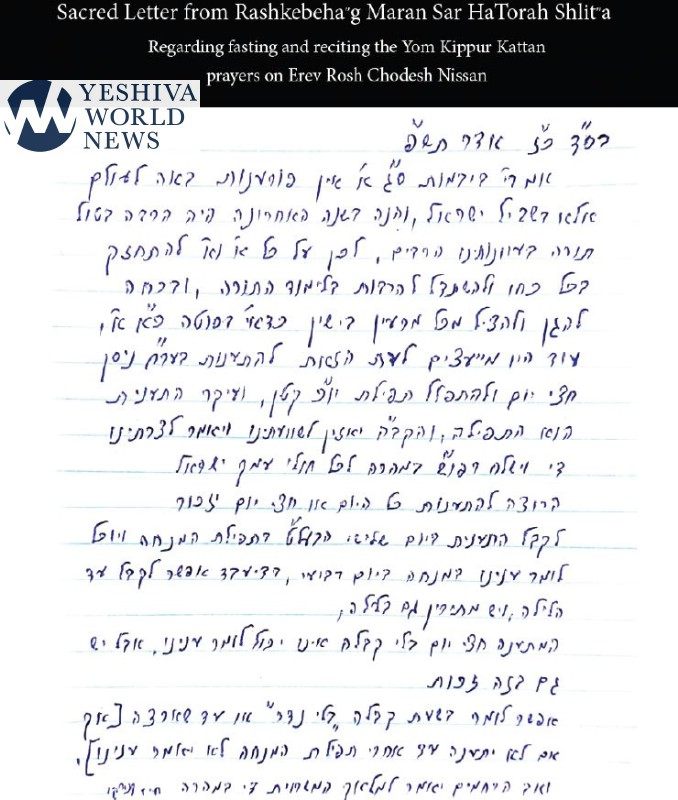 Sacred Letter from Rashkebeha"g Maran Sar HaTorah Shlit"a
Regarding fasting and reciting the Yom Kippur Kattan
prayers on Erev Rosh Chodesh Nissan
YESHIVA
WORLD
NEWS
בס"ד כ"ז אדר תש"פ
אמרי' ביבמות ס"ג א' אין פורענות באה לעולם
אלא בשביל ישראל, והנה בשנה האחרונה היה הרבה בטול
תורה בעוונותינו הרבים, לכן על כל א' וא' להתחזק
בכל כחו ולהשתדל להרבות בלימוד התורה, ובכחה
להגן ולהציל מכל מרעין בישין כדאי' בסוטה כ"א א',
עוד היו מייעצים לעת הזאת להתענות בער"ח ניסן
חצי יום ולהתפלל תפילת יו"כ קטן, ועיקר התענית
הוא התפילה, והקב"ה יאזין לשוועתינו ויאמר לצרתינו
די וישלח רפו"ש במהרה לכל חולי עמך ישראל
הרוצה להתענות כל היום או חצי יום יזכור
לקבל התענית ביום שלישי הבעל"ט בתפילת המנחה ויוכל
לומר עננו במנחה ביום רביעי, בדיעבד אפשר לקבל עד
הלילה, ויש מתירין גם בלילה,
המתענה חצי יום בלי קבלה אינו יכול לומר עננו, אבל יש
גם בזה זכות
אפשר לומר בשעת קבלה "בלי נדר" או עד שארצה [אך
אם לא יתענה עד אחרי תפילת המנחה לא יאמר עננו],
ואב הרחמים יאמר למלאך המשחית די במהרה